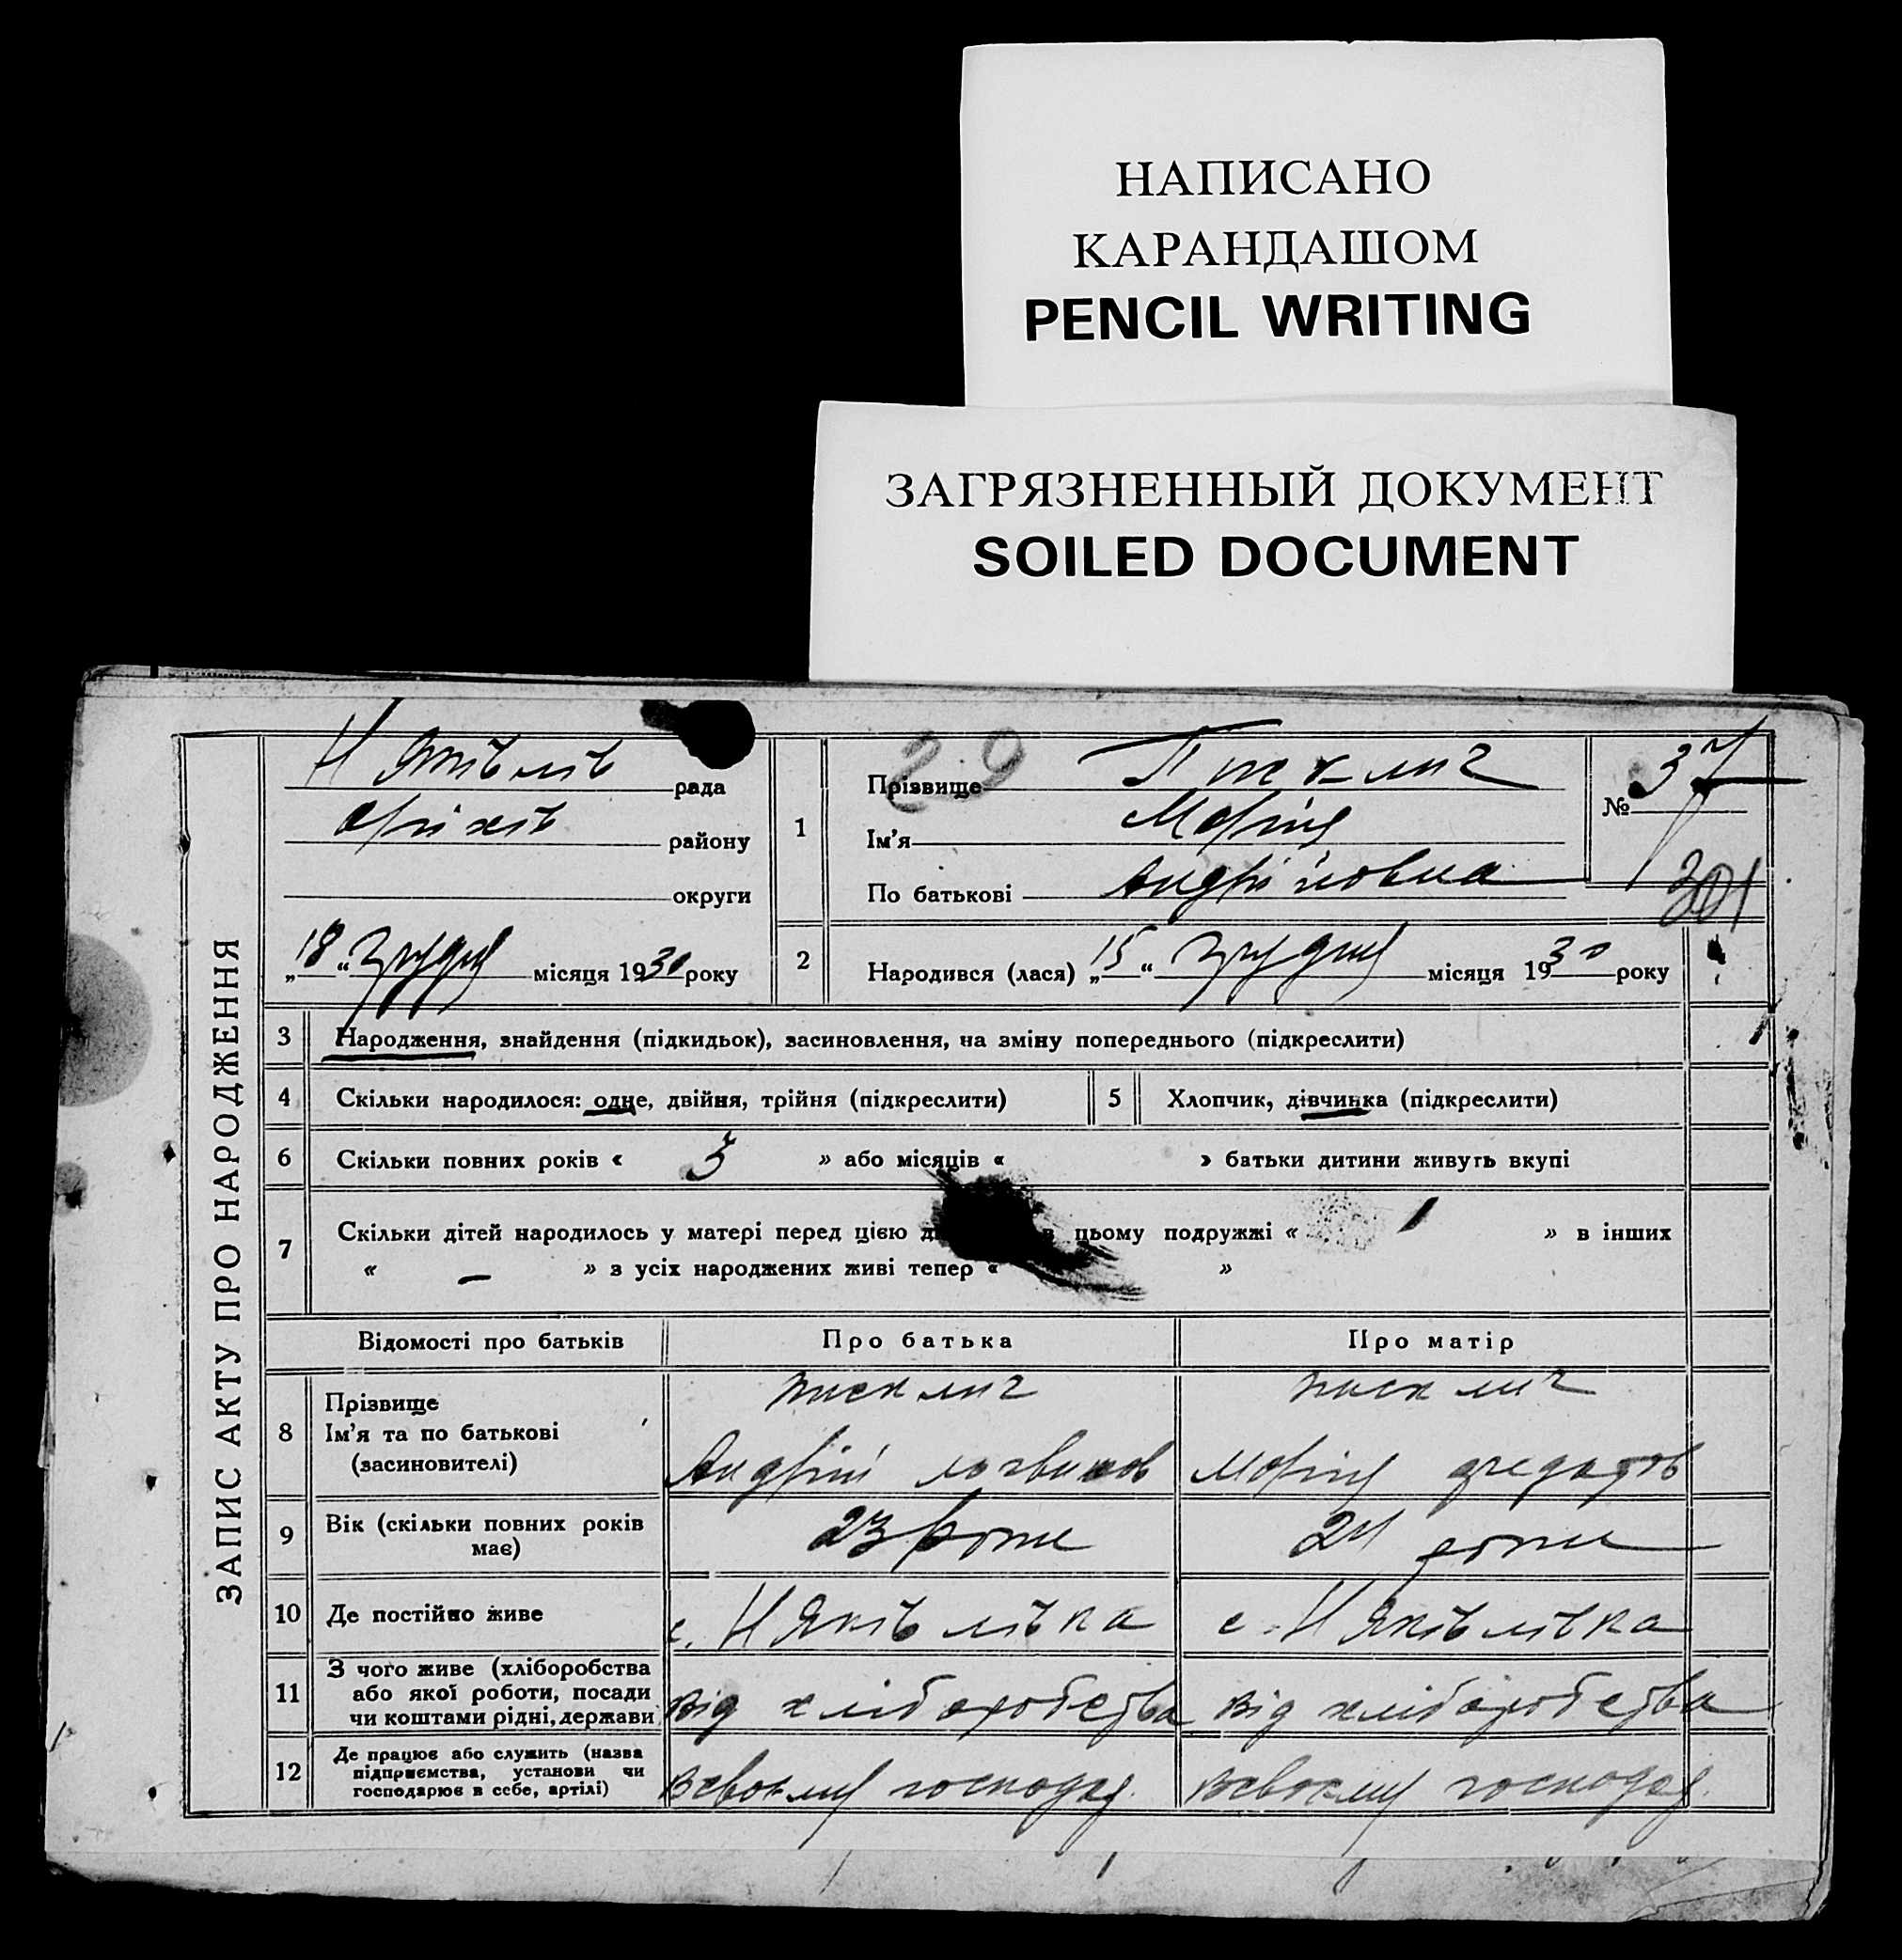 НАПИСАНО
КАРАНДАШОМ
PENCIL WRITING
ЗАГРЯЗНЕННЫЙ ДОКУМЕНТ
SOILED DOCUMENT
ЗАПИС АКТУ ПРО НАРОДЖЕННЯ
Н Яківлів рада
Оріхів району
округи
„18“ грудня місяця 1930 року
29
1 Прізвище
Ім'я Марія
По батькові Андріївна
№ 37
301
2 Народився (лася) „15“ грудня місяця 1930 року
3 Народження, знайдення (підкидьок), засиновлення, на зміну попереднього (підкреслити)
4 Скільки народилося: одне, двійня, трійня (підкреслити) 5 Хлопчик, дівчинка (підкреслити)
6 Скільки повних років « 3 » або місяців « » батьки дитини живуть вкупі
7 Скільки дітей народилось у матері перед цією в цьому подружжі « 1 » в інших
« — » з усіх народжених живі тепер « »
Відомості про батьків Про батька Про матір
8 Прізвище
Ім'я та по батькові
(засиновителі)
Писклич Писклич
Андрій Марія
9 Вік (скільки повних років
має)
23 роки 24 роки
10 Де постійно живе с. Н Яківлівка с. Н Яківлівка
11 З чого живе (хліборобства
або якої роботи, посади
чи коштами рідні, держави
від хліборобства від хліборобства
12 Де працює або служить (назва
підприємства, установи чи
господарює в себе, артілі)
господар. господар.